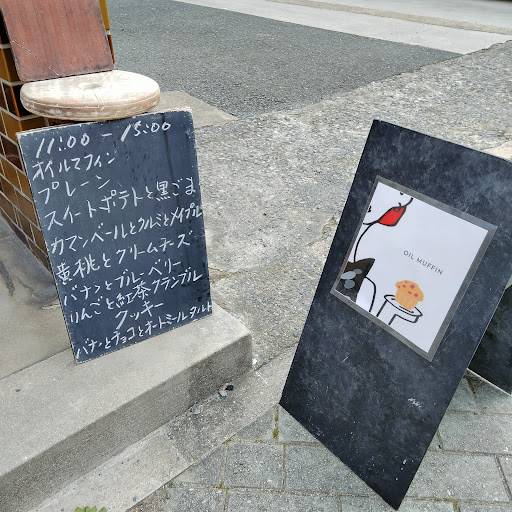 11:00 - 15:00
オイルマフィン
プレーン
スイートポテトと黒ごま
カマンベールとクルミとメイプル
黄桃とクリームチーズ
バナナとブルーベリー
りんごと紅茶クランブル
クッキー
バナナとチョコとオートミールタルト
OIL MUFFIN